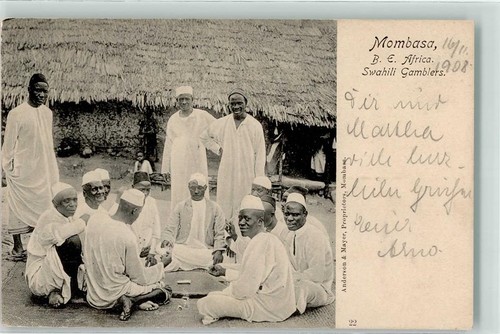 Mombasa,
B. E. Africa.
Swahili Gamblers.
16/11
1908
Dir und
Martha
viele herz-
Grüße
Arno
Anderson & Mayer, Proprietors, Mombasa.
22